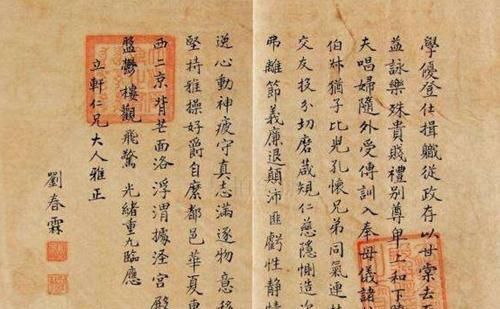 學優登仕攝職從政存以甘棠去
益詠樂殊貴賤禮別尊卑上和下睦
夫唱婦隨外受傅訓入奉母儀諸
伯叔猶子比兒孔懷兄弟同氣連
交友投分切磨箴規仁慈隱惻造次
弗離節義廉退顛沛匪虧性靜情
逸心動神疲守真志滿逐物意移
堅持雅操好爵自縻都邑華夏東
西二京背芒面洛浮渭據涇宮殿
盤鬱樓觀飛驚 光緒重九臨應
立軒仁兄大人雅正
劉春霖